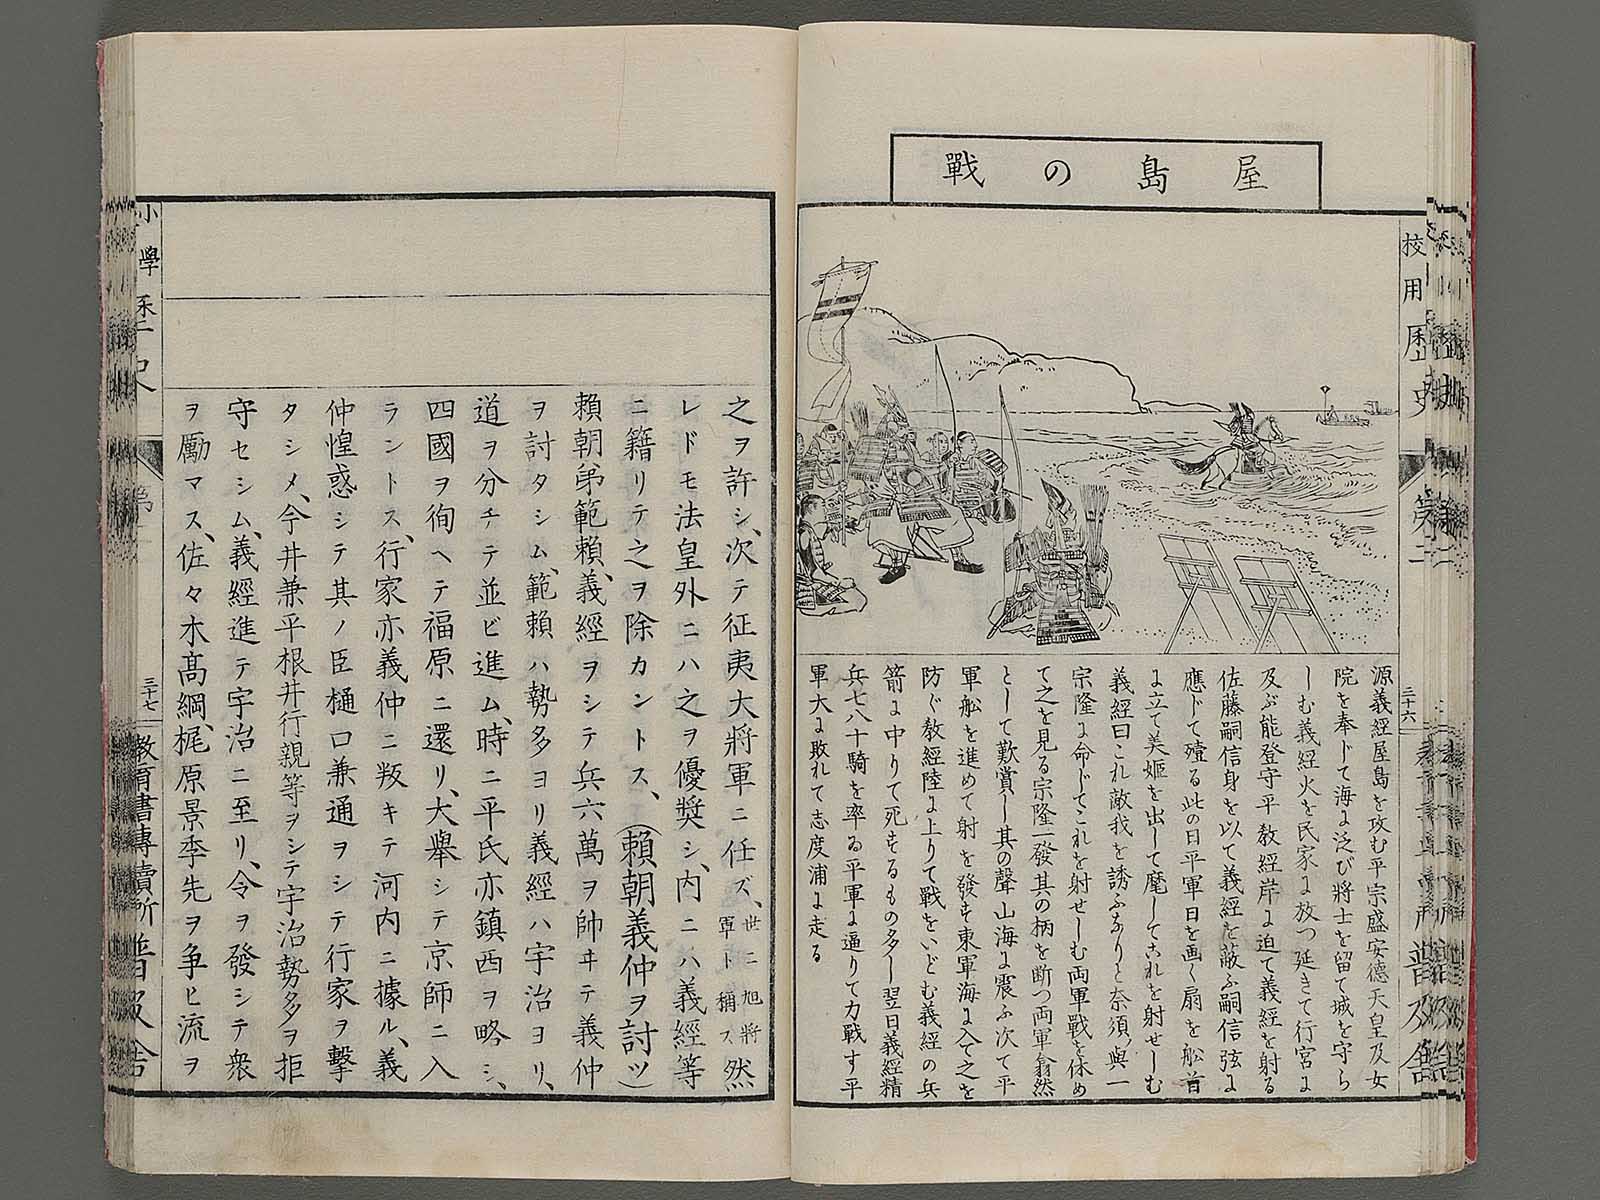 屋島の戰
校用歴史
第二
三十六
普及舎
源義經屋島を攻む平宗盛安德天皇及女
院を奉じて海に泛び將士を留て城を守ら
しむ義經火を民家に放つ延きて行宮に
及ぶ能登守平敎經岸に迫て義經を射る
佐藤嗣信身を以て義經を蔽ふ嗣信弦に
應じて殪る此の日平軍日を画く扇を舩首
に立て美姬を出して麾してこれを射せしむ
義經曰これ敵我を誘ふなりと奈須與一
宗隆に命じてこれを射せしむ両軍戰を休め
て之を見る宗隆一發其の柄を断つ両軍翕然
として歎賞し其の聲山海に震ふ次て平
軍舩を進めて射を發す東軍海に入て之を
防ぐ敎經陸に上りて戰をいどむ義經の兵
箭に中りて死するもの多し翌日義經精
兵七八十騎を率る平軍に逼りて力戰す平
軍大に敗れて志度浦に走る
之ヲ許シ、次テ征夷大將軍ニ任ズ、世ニ旭將軍ト稱ス然
レドモ法皇外ニハ之ヲ優奬シ、内ニハ義經等
ニ籍リテ之ヲ除カントス、(賴朝義仲ヲ討ツ)
賴朝弟範賴、義經ヲシテ兵六萬ヲ帥ヰテ義仲
ヲ討タシム、範賴ハ勢多ヨリ義經ハ宇治ヨリ、
道ヲ分チテ並ビ進ム、時ニ平氏亦鎮西ヲ略シ、
四國ヲ徇ヘテ福原ニ還リ、大擧シテ京師ニ入
ラントス、行家亦義仲ニ叛キテ河内ニ據ル、義
仲惶惑シテ其ノ臣樋口兼通ヲシテ行家ヲ擊
タシメ、今井兼平根井行親等ヲシテ宇治勢多ヲ拒
守セシム、義經進テ宇治ニ至リ、令ヲ發シテ衆
ヲ勵マス、佐々木高綱、梶原景季先ヲ争ヒ流ヲ
小學歴史
三十七
敎育書專賣所普及舍